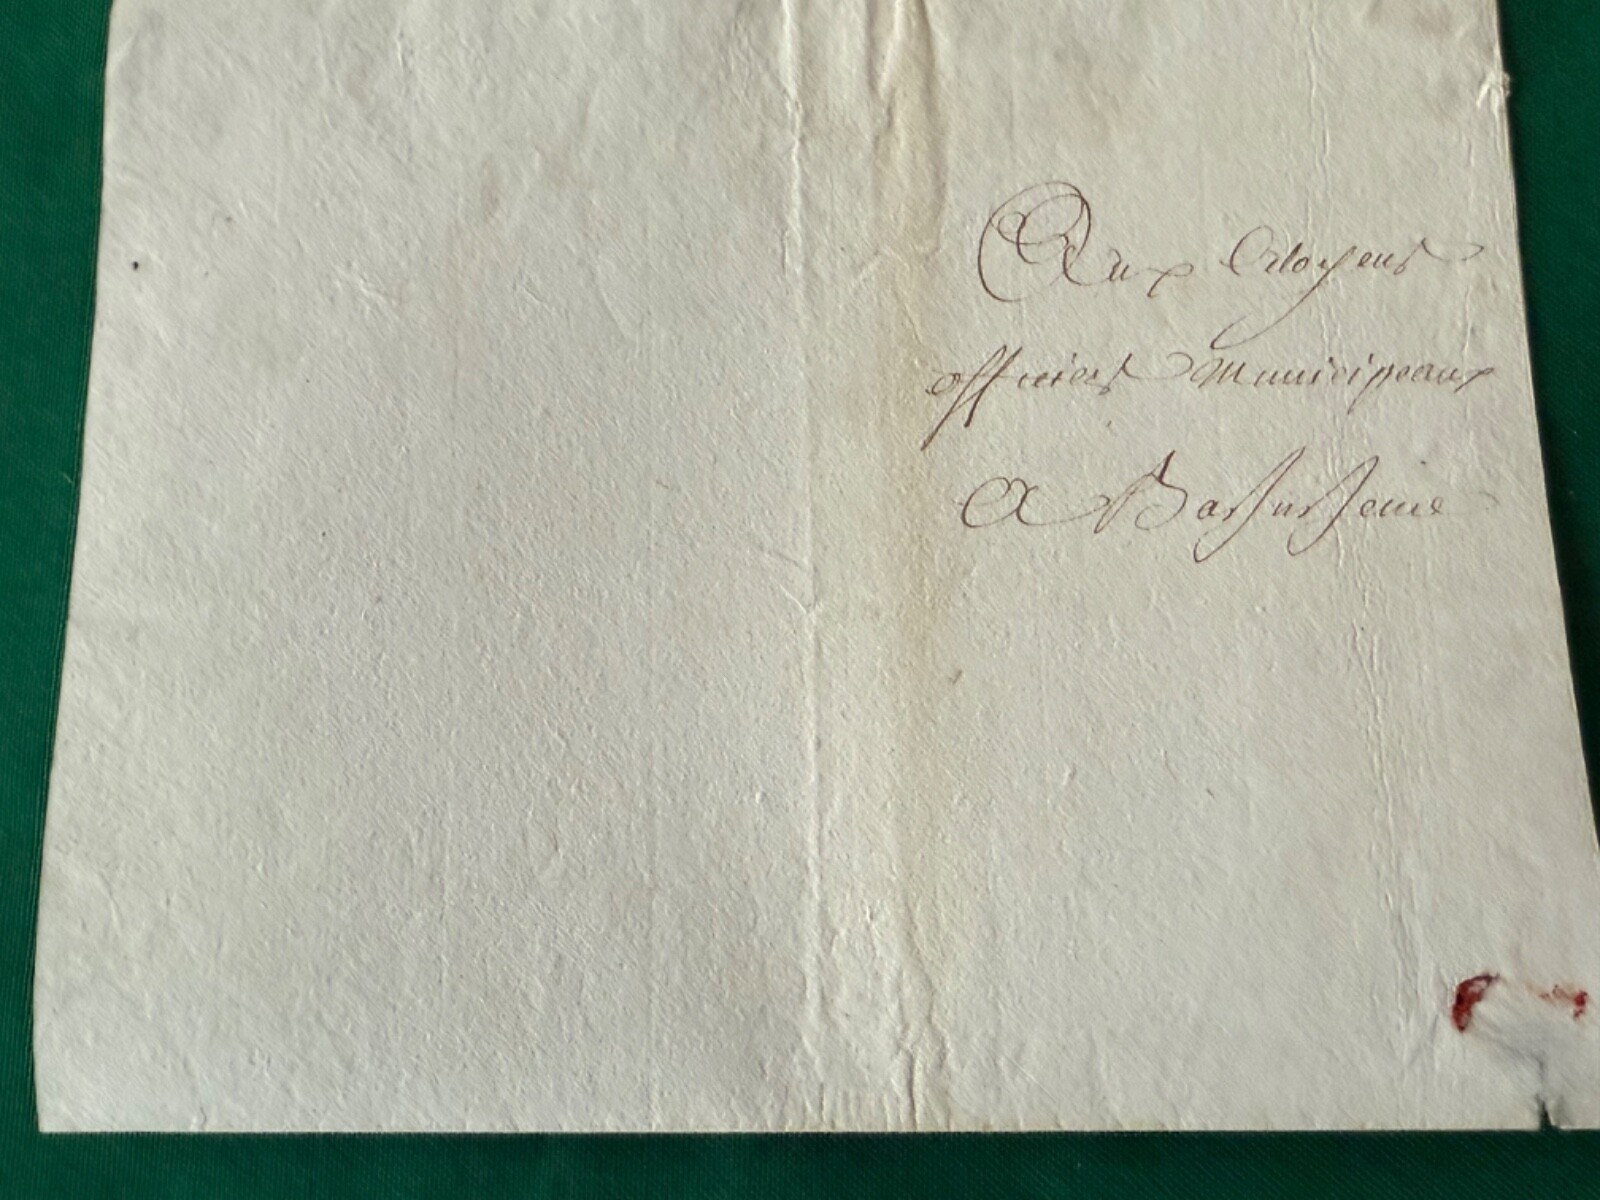 Aux Citoyens
officiers Municipeaux
A Bar sur Seine